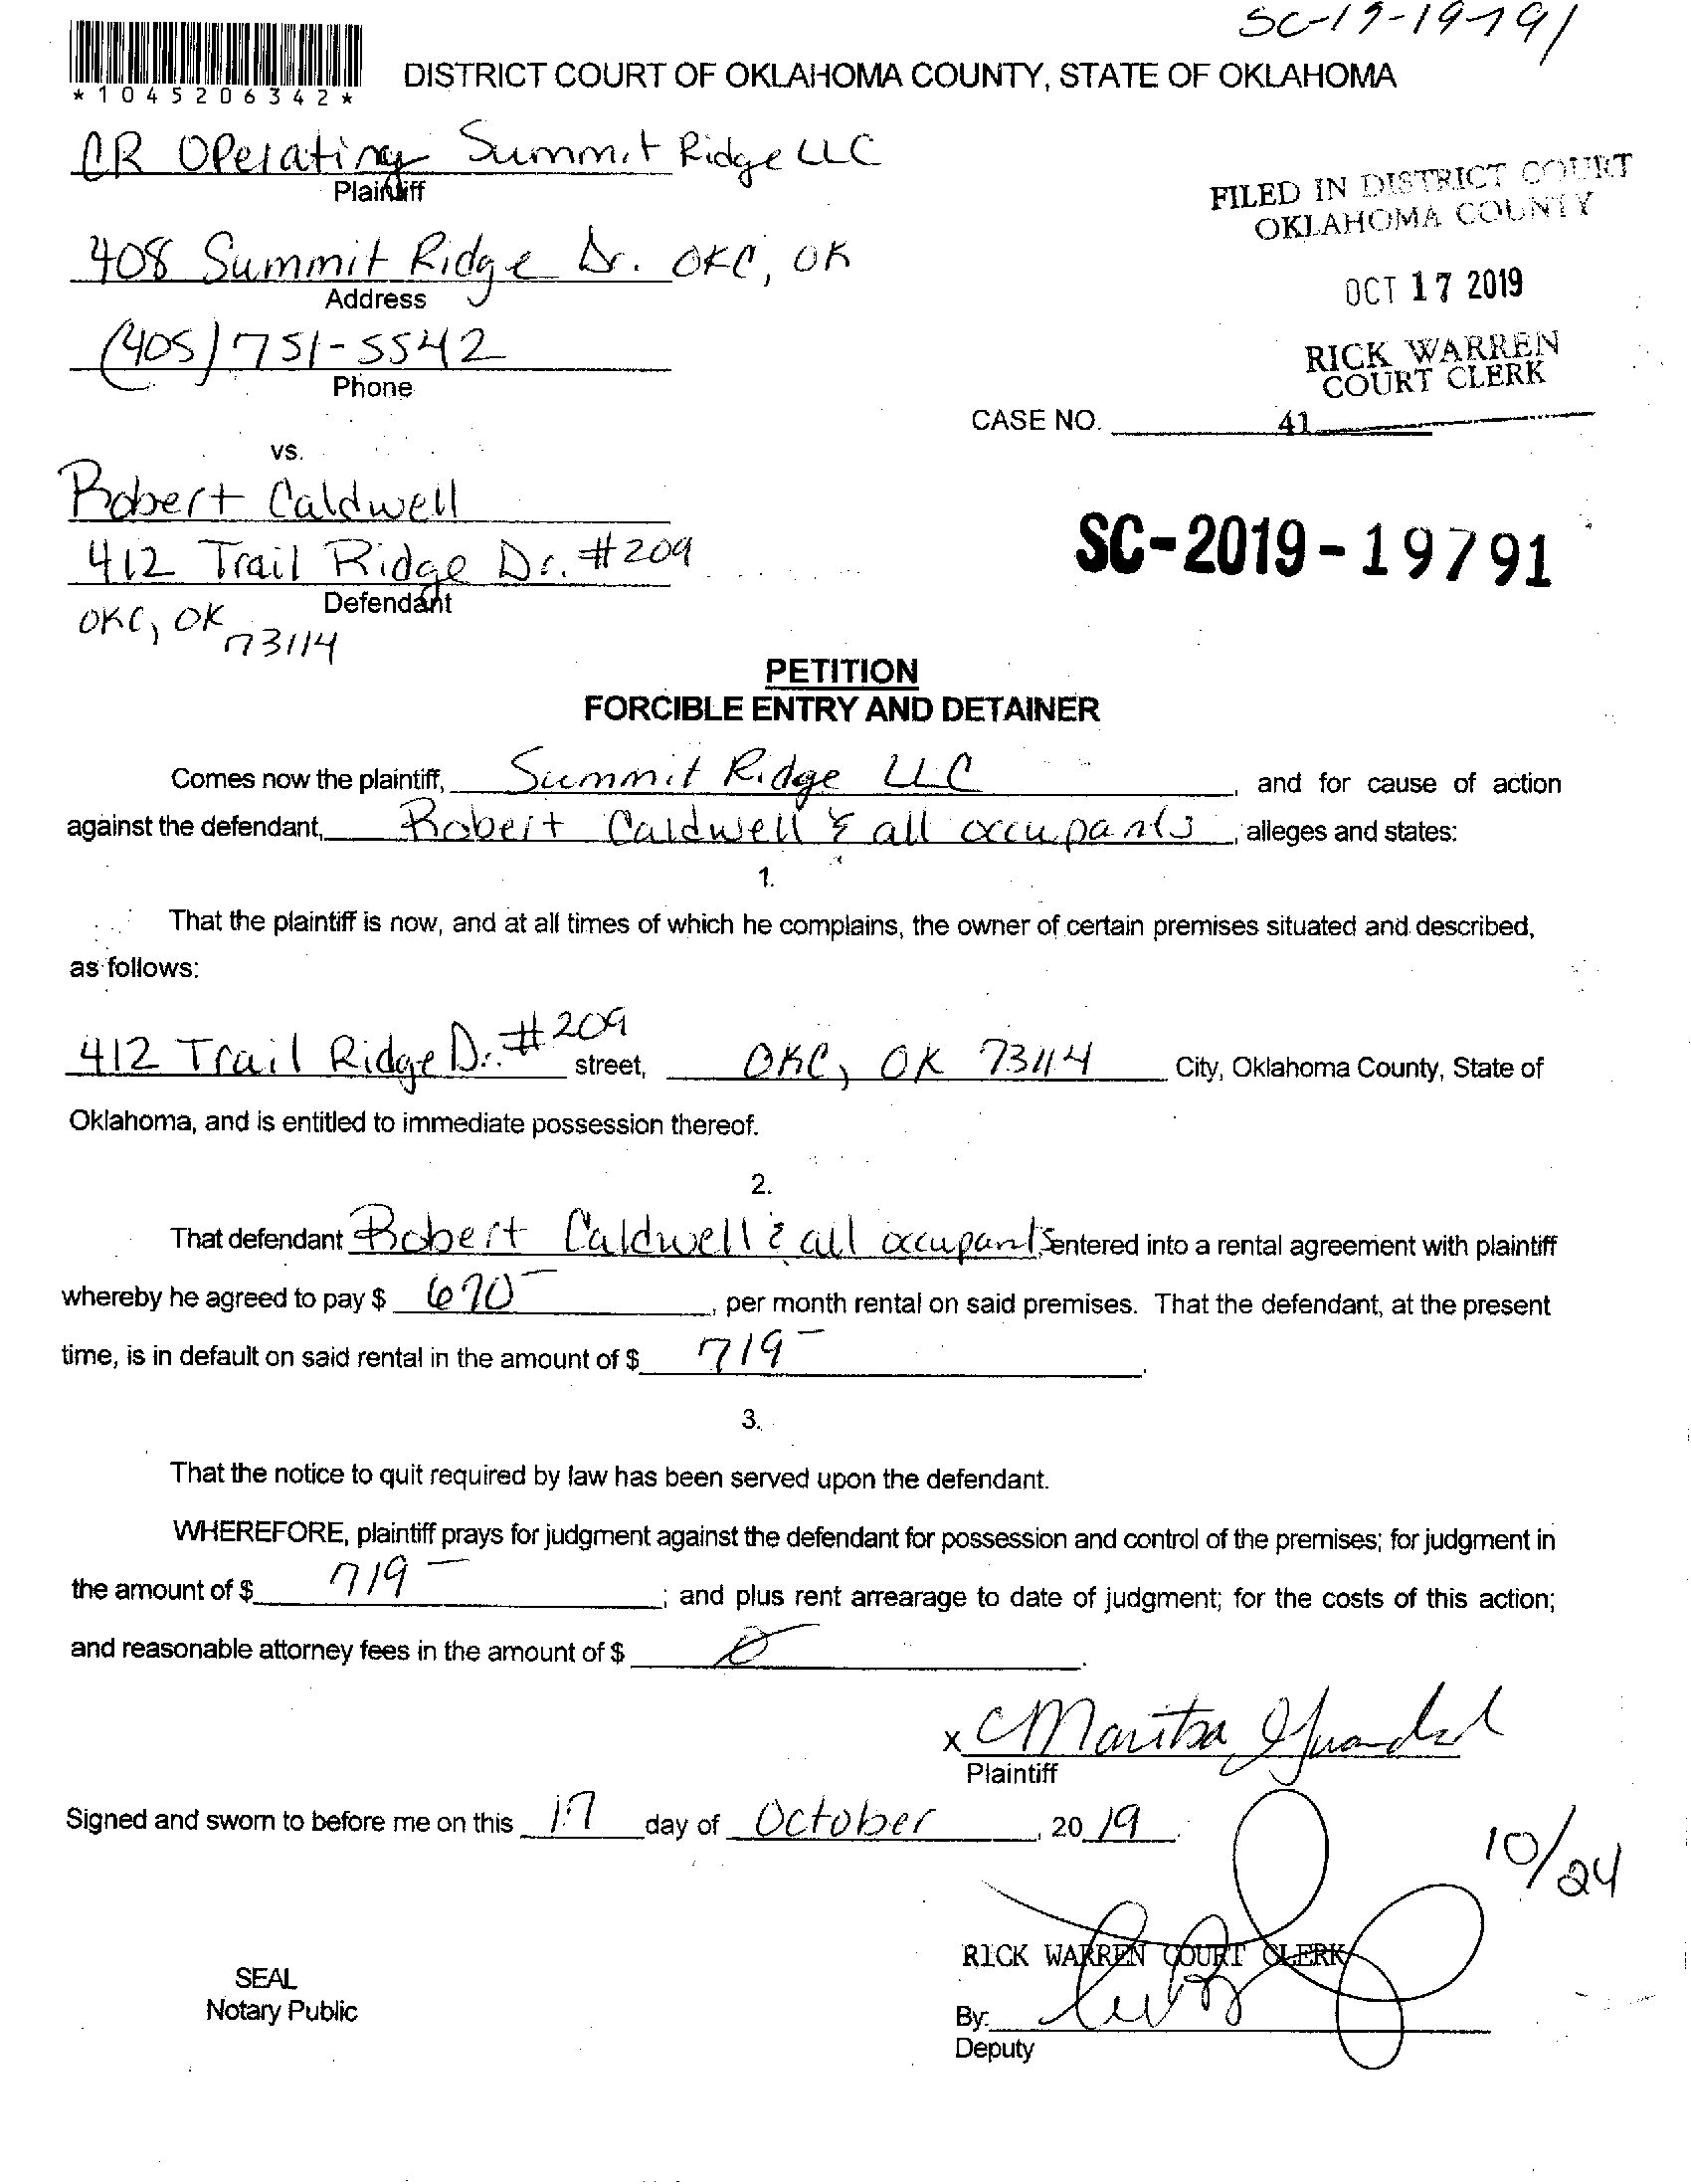 SC-19-19791
*1045206342*
DISTRICT COURT OF OKLAHOMA COUNTY, STATE OF OKLAHOMA
CR Operating Summit Ridge LLC
Plaintiff
408 Summit Ridge Dr. OKC, OK
Address
(405) 751-5542
Phone
FILED IN DISTRICT COURT
OKLAHOMA COUNTY
OCT 17 2019
RICK WARREN
COURT CLERK
CASE NO. 41
vs.
Robert Caldwell
412 Trail Ridge Dr. #209
Defendant
OKC, OK
73114
SC-2019-19791
PETITION
FORCIBLE ENTRY AND DETAINER
Comes now the plaintiff, Summit Ridge LLC, and for cause of action
against the defendant, Robert Caldwell & all occupants, alleges and states:
1.
That the plaintiff is now, and at all times of which he complains, the owner of certain premises situated and described,
as follows:
412 Trail Ridge Dr. #209 street, OKC, OK 73114 City, Oklahoma County, State of
Oklahoma, and is entitled to immediate possession thereof.
2.
That defendant Robert Caldwell & all occupants, entered into a rental agreement with plaintiff
whereby he agreed to pay $ 670-, per month rental on said premises. That the defendant, at the present
time, is in default on said rental in the amount of $ 719-.
3.
That the notice to quit required by law has been served upon the defendant.
WHEREFORE, plaintiff prays for judgment against the defendant for possession and control of the premises; for judgment in
the amount of $ 719-; and plus rent arrearage to date of judgment; for the costs of this action;
and reasonable attorney fees in the amount of $ 0.
x Maritza
Plaintiff
Signed and sworn to before me on this 17 day of October, 2019.
10/24
RICK WARREN COURT CLERK
SEAL
Notary Public
By:
Deputy